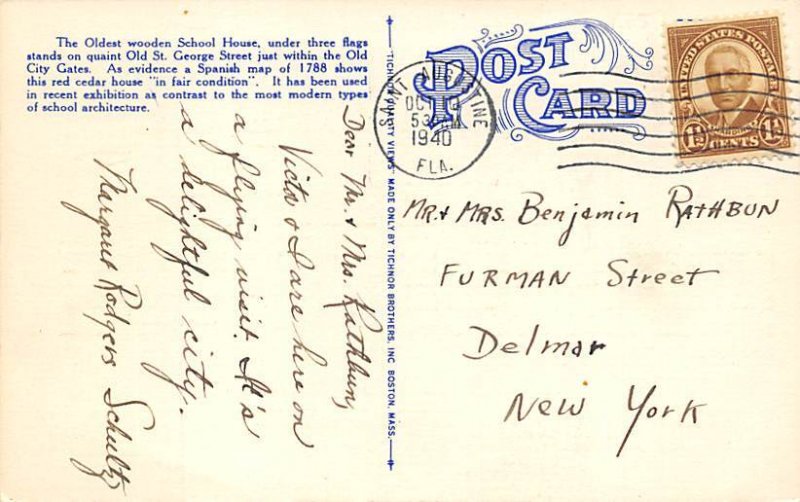 The Oldest wooden School House, under three flags
stands on quaint Old St. George Street just within the Old
City Gates. As evidence a Spanish map of 1788 shows
this red cedar house "in fair condition". It has been used
in recent exhibition as contrast to the most modern types
of school architecture.
Dear Mr. & Mrs. Rathbun,
Victor & I are here on
a flying visit. It's
a delightful city.
Margaret Rodgers Schultz
TICHNOR QUALITY VIEWS MADE ONLY BY TICHNOR BROTHERS, INC. BOSTON, MASS.
POST
CARD
SAINT AUGUSTINE
OCT
5 PM
1940
FLA.
UNITED STATES POSTAGE
1½ 1½
CENTS
Mr. & Mrs. Benjamin RATHBUN
FURMAN Street
Delmar
New York